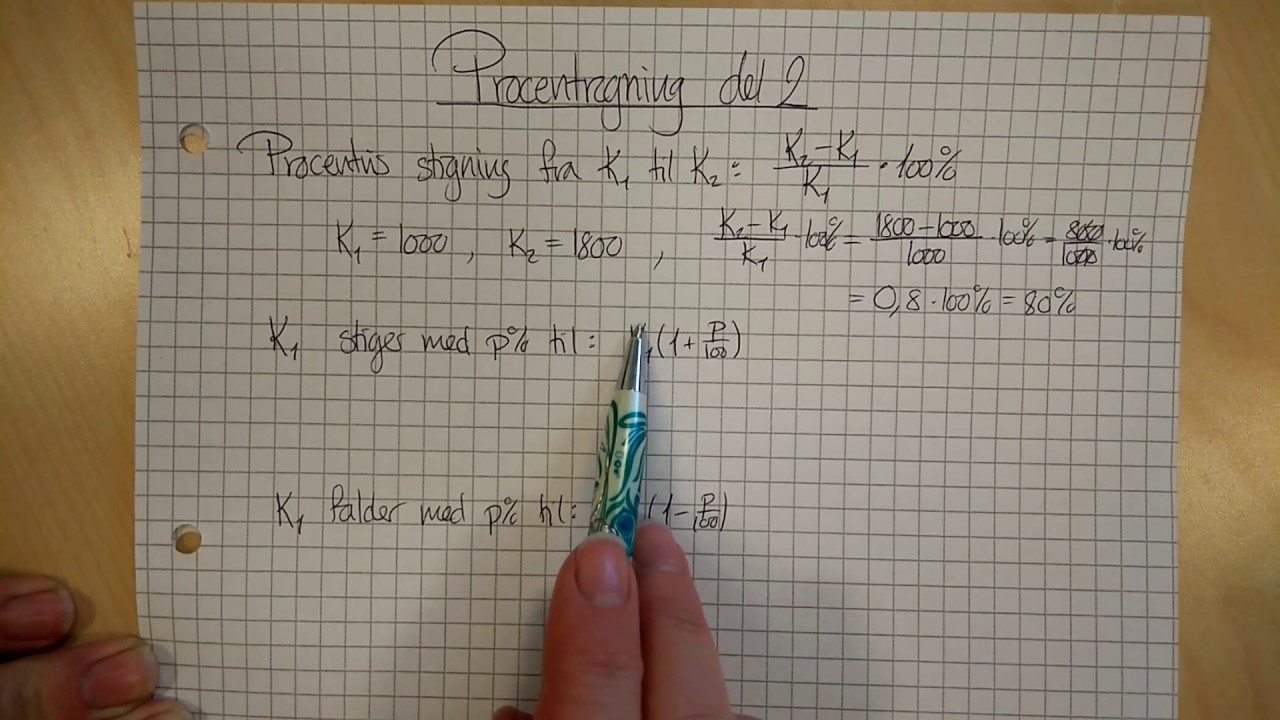 Procentregning del 2
Procentvis stigning fra K₁ til K₂: (K₂-K₁)/K₁ · 100%
K₁ = 1000, K₂ = 1800, (K₂-K₁)/K₁ · 100% = (1800-1000)/1000 · 100% = 800/1000 · 100%
= 0,8 · 100% = 80%
K₁ stiger med p% til: K₁(1+p/100)
K₁ falder med p% til: (1-p/100)